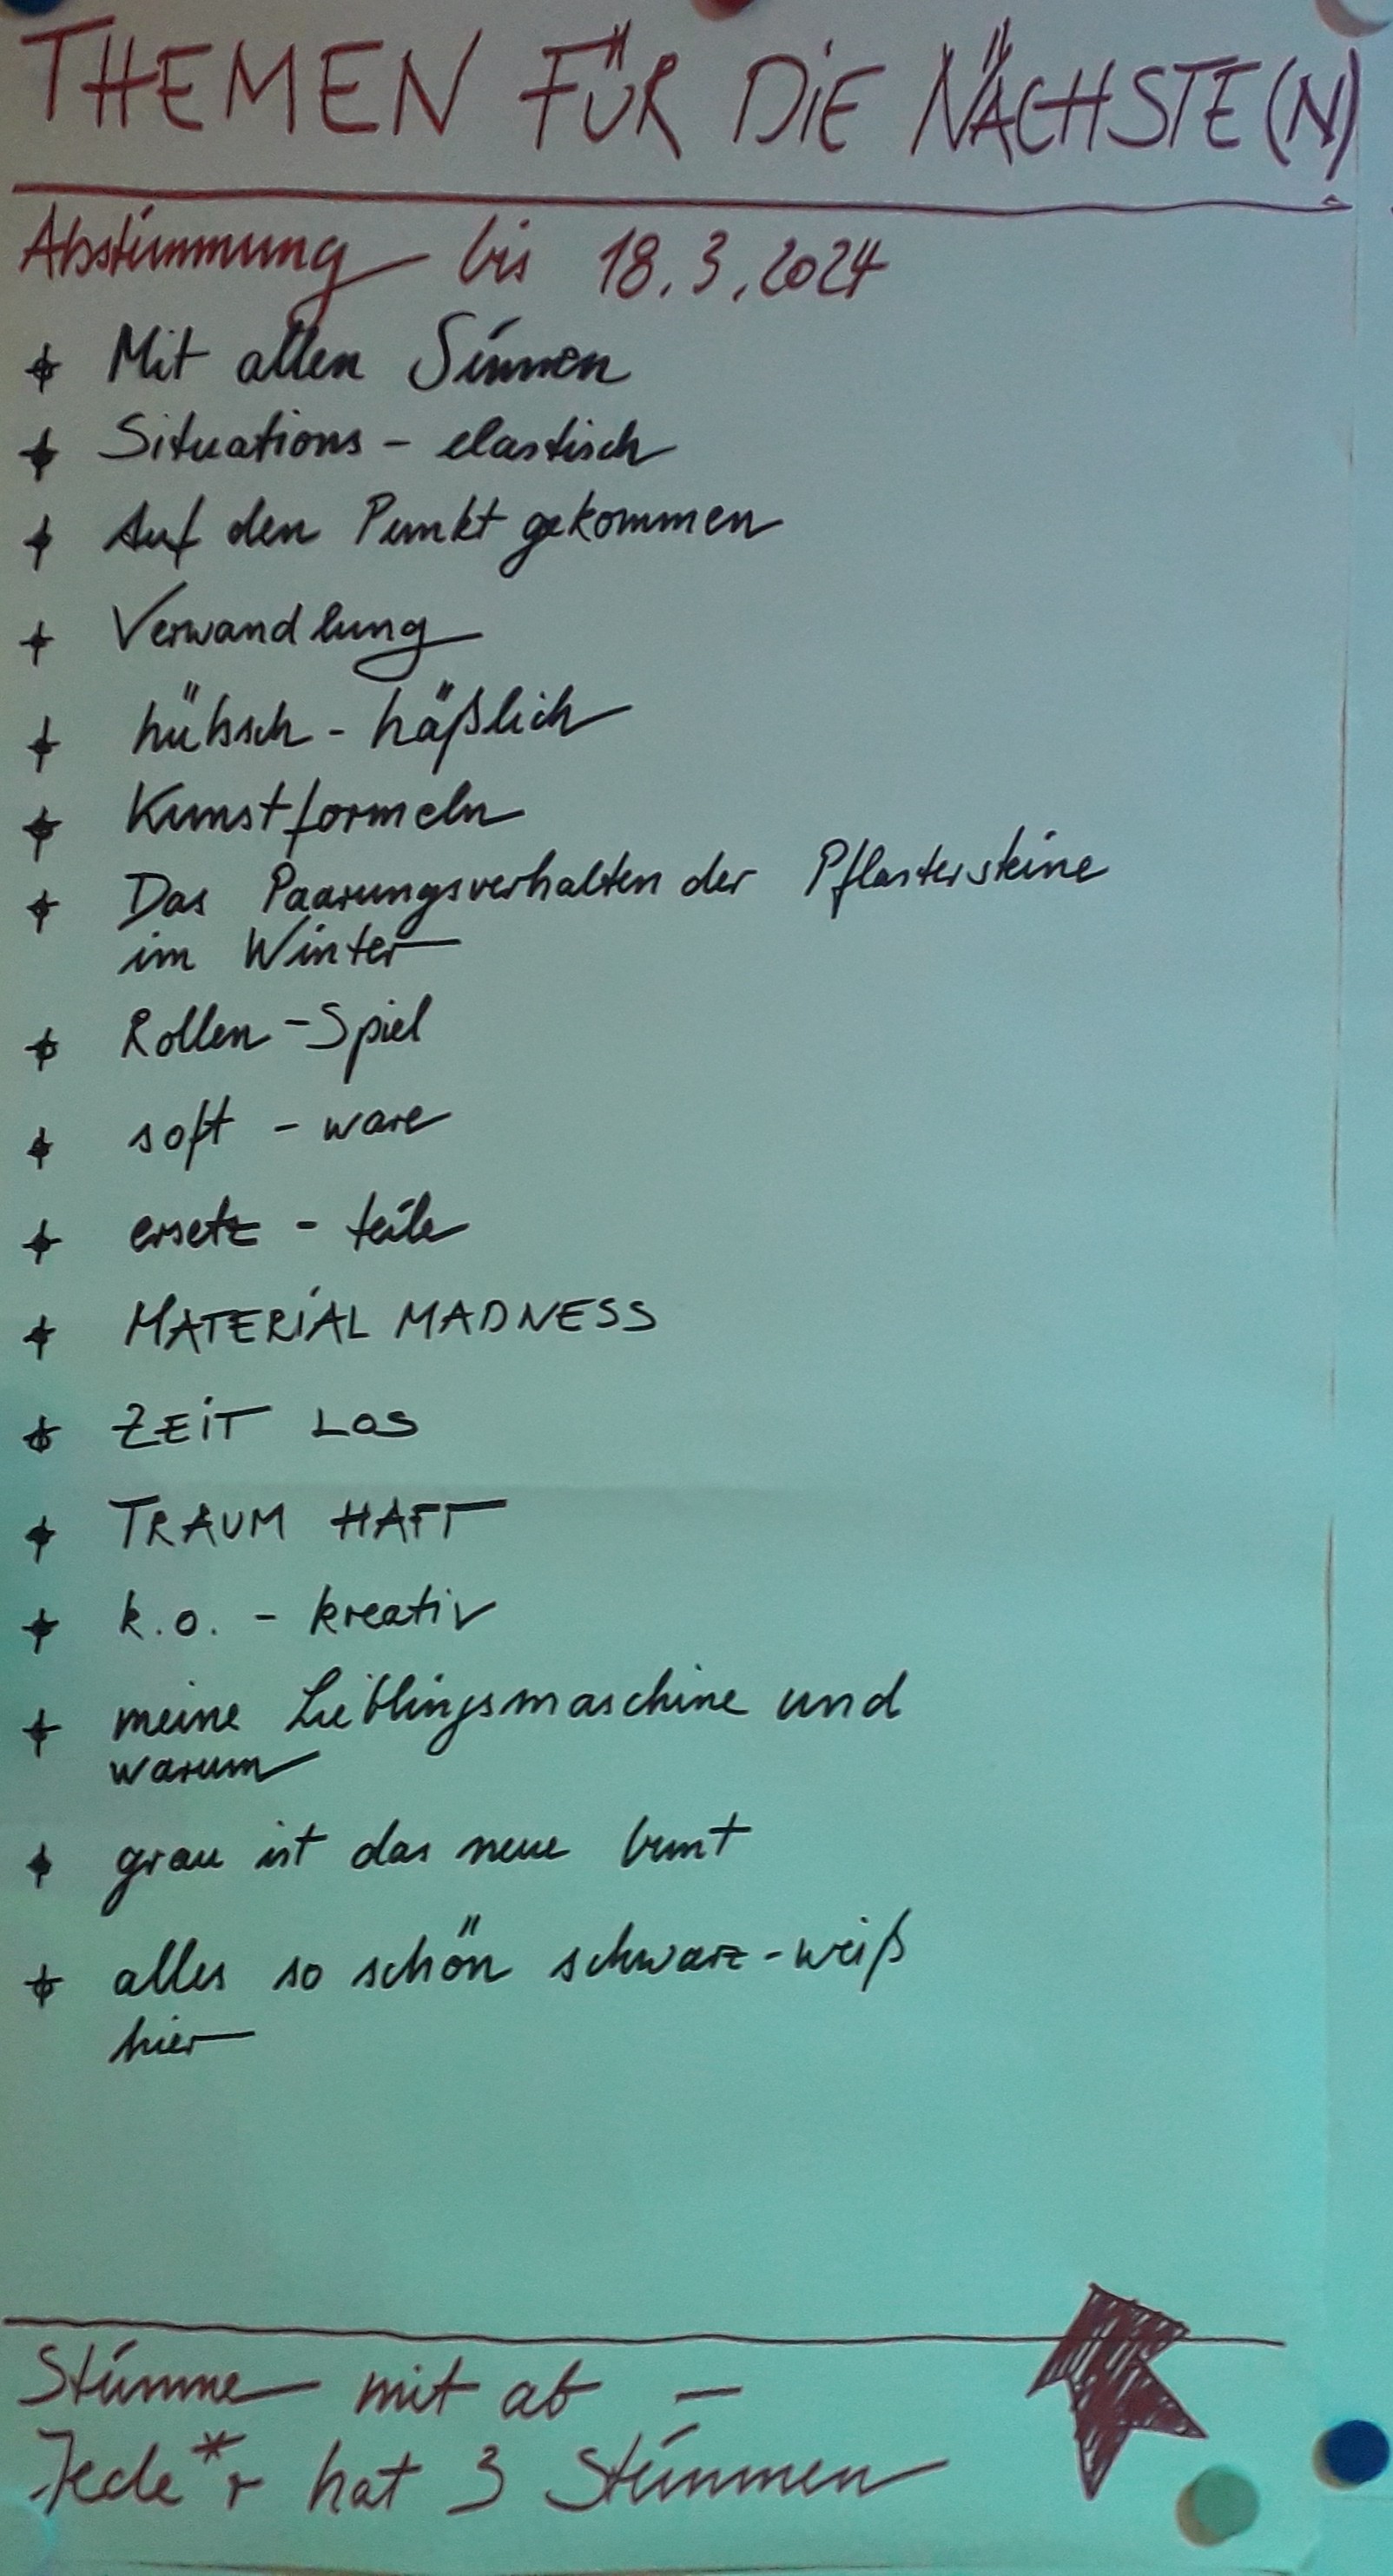 THEMEN FÜR DIE NÄCHSTE(N)
Abstimmung bis 18.3.2024
+ Mit allen Sinnen
+ Situations - elastisch
+ Auf den Punkt gekommen
+ Verwandlung
+ hübsch - häßlich
+ Kunstformeln
+ Das Paarungsverhalten der Pflastersteine
im Winter
+ Rollen - Spiel
+ soft - ware
+ ersetz - teile
+ MATERIAL MADNESS
+ ZEIT LOS
+ TRAUM HAFT
+ k.o. - kreativ
+ meine Lieblingsmaschine und
warum
+ grau ist das neue bunt
+ alles so schön schwarz-weiß
hier
Stimme mit ab —
Jede*r hat 3 Stimmen